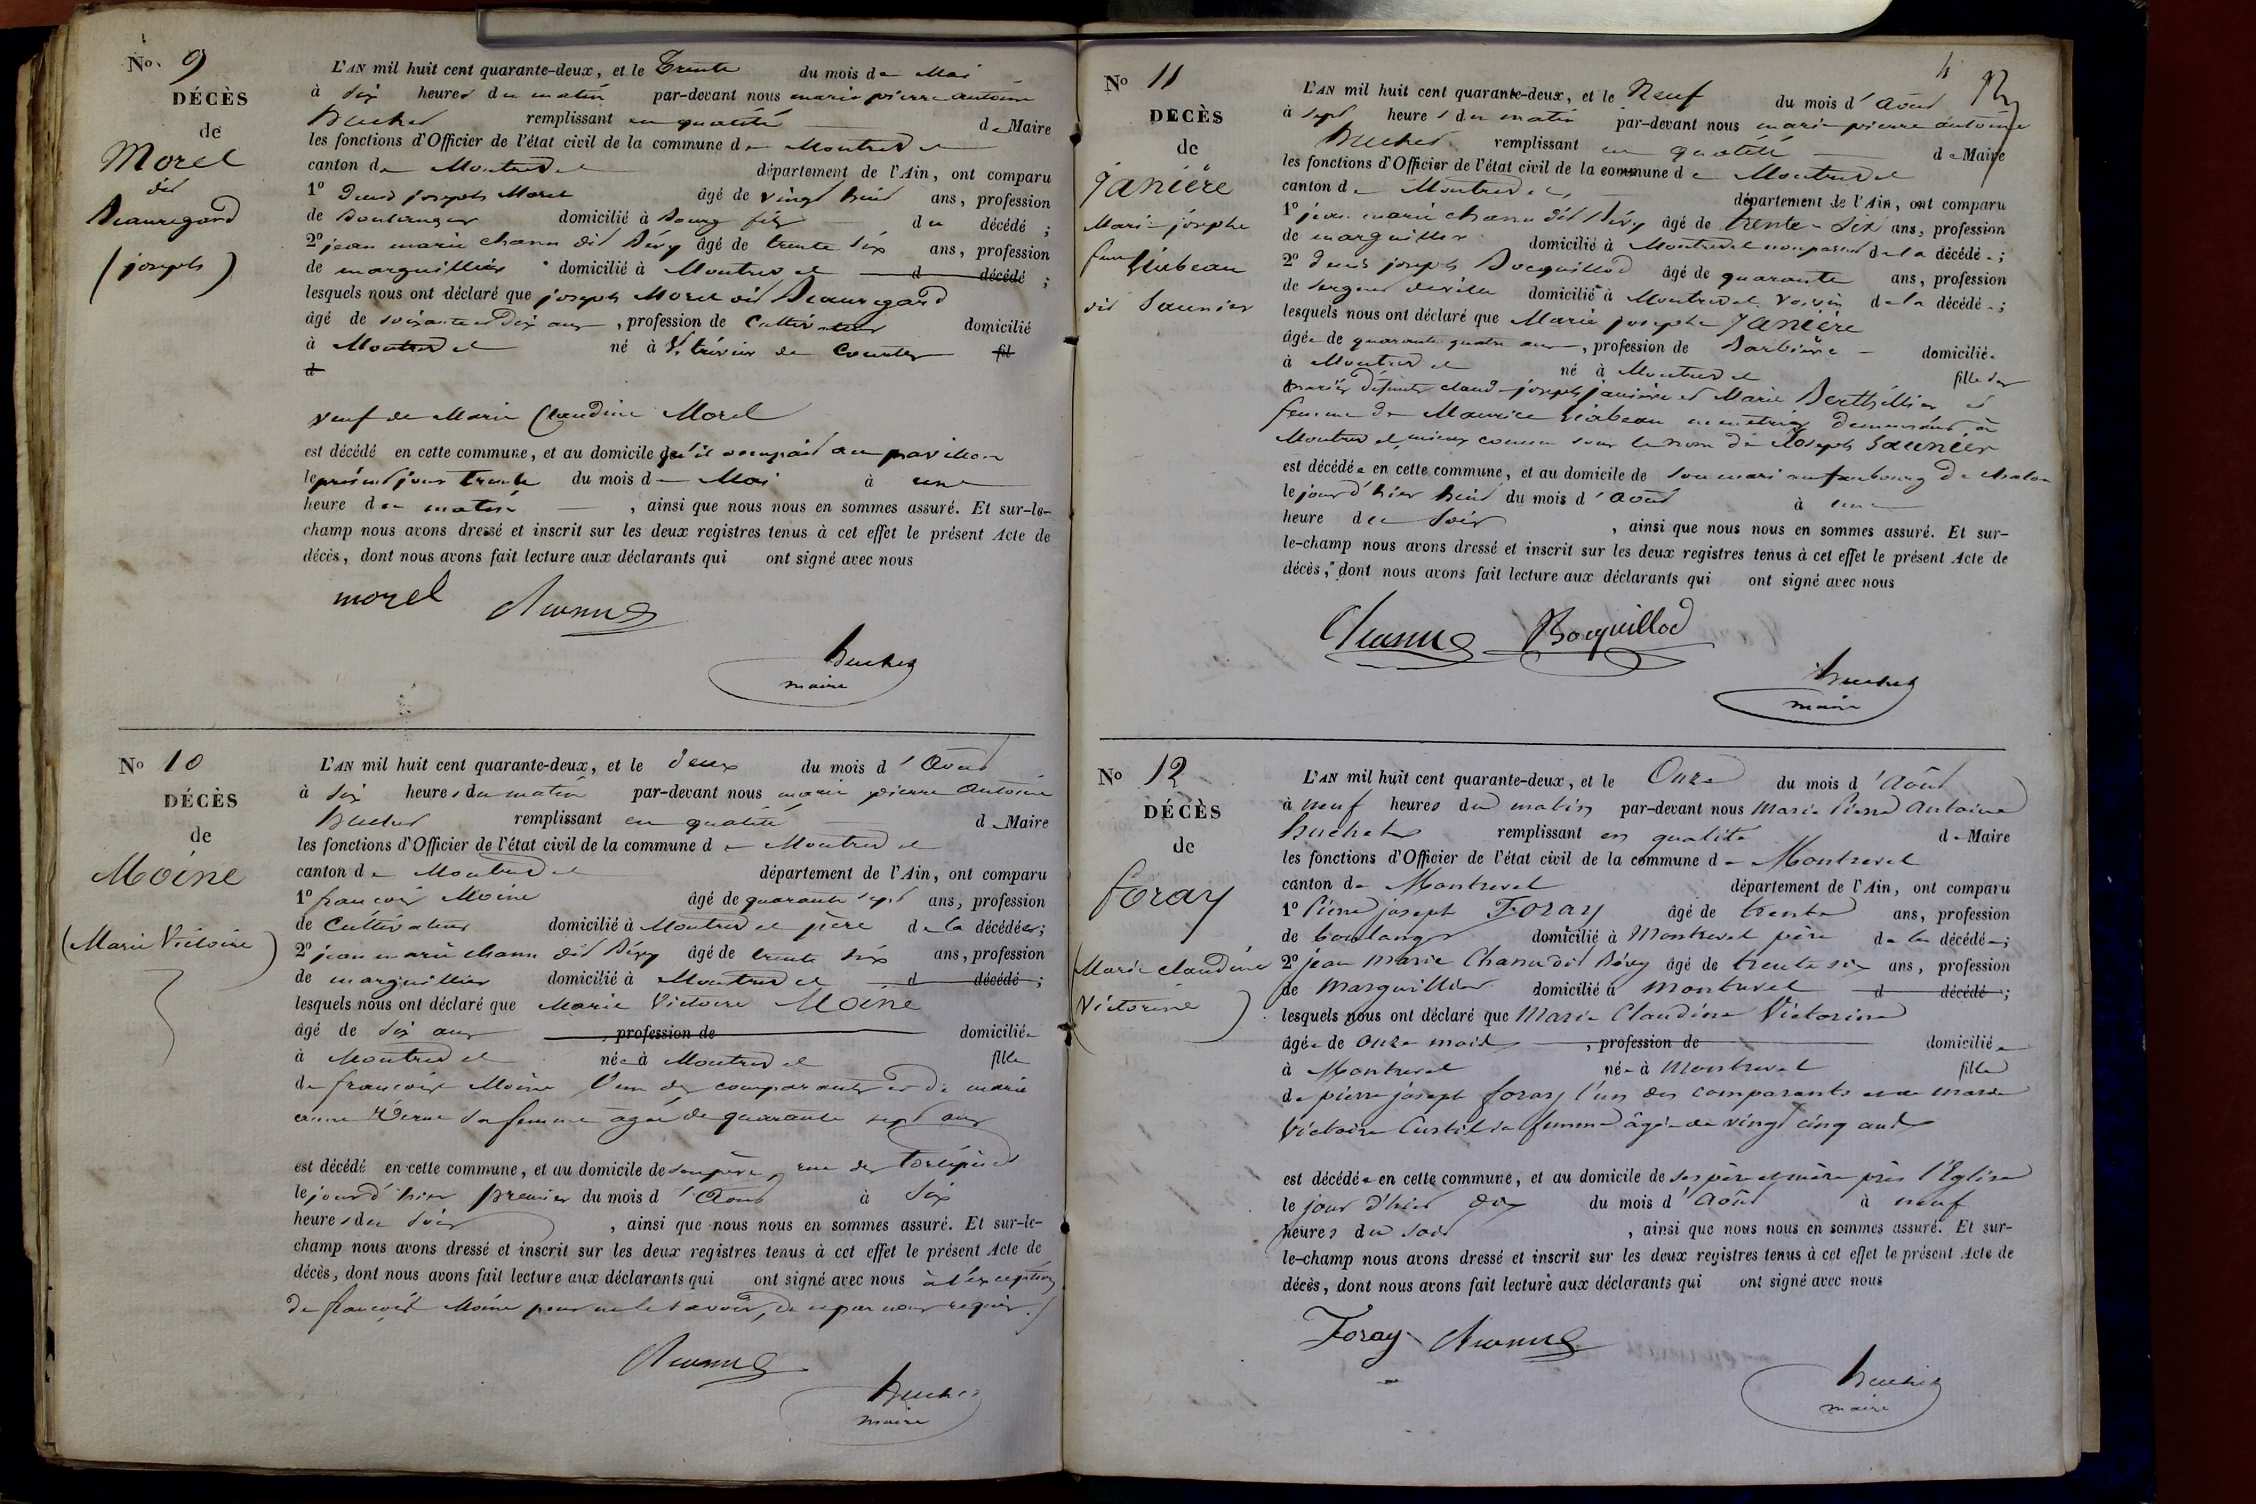 No. 9
DÉCÈS
de
Morel
dit
Beauregard
(joseph)
L'AN mil huit cent quarante-deux, et le Trente du mois de Mai
à six heures du matin par-devant nous marie pierre antoine
Buchet remplissant en qualité de Maire
les fonctions d'Officier de l'état civil de la commune de Montrevel
canton de Montrevel département de l'Ain, ont comparu
1º Denis joseph Morel âgé de vingt huit ans, profession
de Boulanger domicilié à Bourg fils du décédé ;
2º jean marie chanu dit Bévy âgé de trente six ans, profession
de marguillier domicilié à Montrevel d décédé ;
lesquels nous ont déclaré que joseph Morel dit Beauregard
âgé de soixante et dix ans, profession de cultivateur domicilié
à Montrevel né à St trivier de Courtes fil
d
veuf de Marie Claudine Morel
est décédé en cette commune, et au domicile qu'il occupait au pavillon
le présent jour trente du mois de Mai à une
heure du matin, ainsi que nous nous en sommes assuré. Et sur-le-
champ nous avons dressé et inscrit sur les deux registres tenus à cet effet le présent Acte de
décès, dont nous avons fait lecture aux déclarants qui ont signé avec nous
morel Chanu
Buchet
maire
No 10
DÉCÈS
de
Moine
(Marie Victoire)
L'AN mil huit cent quarante-deux, et le deux du mois d'Aout
à six heures du matin par-devant nous marie pierre Antoine
Buchet remplissant en qualité de Maire
les fonctions d'Officier de l'état civil de la commune de Montrevel
canton de Montrevel département de l'Ain, ont comparu
1º françois Moine âgé de quarante sept ans, profession
de cultivateur domicilié à Montrevel père de la décédée;
2º jean marie chanu dit Bévy âgé de trente six ans, profession
de marguillier domicilié à Montrevel d décédé ;
lesquels nous ont déclaré que Marie Victoire Moine
âgé de six ans, profession de domiciliée
à Montrevel née à Montrevel fille
de françois Moine l'un des comparants et de marie
anne Verne sa femme agée de quarante sept ans
est décédé en cette commune, et au domicile de son père, rue des
le jour d'hier premier du mois d'Aout à six
heures du soir, ainsi que nous nous en sommes assuré. Et sur-le-
champ nous avons dressé et inscrit sur les deux registres tenus à cet effet le présent Acte de
décès, dont nous avons fait lecture aux déclarants qui ont signé avec nous à l'exception
de françois Moine pour ne le savoir, de ce par nous requis.
Chanu
Buchet
maire
No 11
DÉCÈS
de
Janière
Marie josephe
femme
dit Saunier
L'AN mil huit cent quarante-deux, et le Neuf du mois d'Aout
à sept heures du matin par-devant nous marie pierre antoine
Buchet remplissant en qualité de Maire
les fonctions d'Officier de l'état civil de la commune de Montrevel
canton de Montrevel département de l'Ain, ont comparu
1º jean marie chanu dit Bévy âgé de trente-six ans, profession
de marguillier domicilié à Montrevel non parent de la décédée;
2º Denis joseph Bocquillod âgé de quarante ans, profession
de sergent de ville domicilié à Montrevel voisin de la décédée;
lesquels nous ont déclaré que Marie josephe Janière
âgée de quarante quatre ans, profession de Barbière domiciliée
à Montrevel né à Montrevel fille des
mariés défunts claude joseph janière et Marie Berthillier et
femme de Maurice demeurant à
Montrevel, mieux connu sous le nom de Joseph Saunier
est décédée en cette commune, et au domicile de son mari au faubourg de chalon
le jour d'hier huit du mois d'aout à une
heure du soir, ainsi que nous nous en sommes assuré. Et sur-
le-champ nous avons dressé et inscrit sur les deux registres tenus à cet effet le présent Acte de
décès, dont nous avons fait lecture aux déclarants qui ont signé avec nous
Chanu Bocquillod
Buchet
maire
No 12
DÉCÈS
de
foray
(Marie claudine
Victorine)
L'AN mil huit cent quarante-deux, et le Onze du mois d'Août
à neuf heures du matin par-devant nous Marie Pierre Antoine
Buchet remplissant en qualité de Maire
les fonctions d'Officier de l'état civil de la commune de Montrevel
canton de Montrevel département de l'Ain, ont comparu
1º Pierre joseph Foray âgé de trente ans, profession
de boulanger domicilié à Montrevel père de la décédée;
2º jean Marie Chanu dit Bévy âgé de trente six ans, profession
de Marguillier domicilié à Montrevel d décédé ;
lesquels nous ont déclaré que Marie Claudine Victorine
âgée de onze mois, profession de domiciliée
à Montrevel née à Montrevel fille
de pierre joseph foray l'un des comparants et de marie
Victoire sa femme âgée de vingt cinq ans
est décédée en cette commune, et au domicile de ses père et mère près l'Eglise
le jour d'hier dix du mois d'Août à neuf
heures du soir, ainsi que nous nous en sommes assuré. Et sur-
le-champ nous avons dressé et inscrit sur les deux registres tenus à cet effet le présent Acte de
décès, dont nous avons fait lecture aux déclarants qui ont signé avec nous
Foray Chanu
Buchet
maire